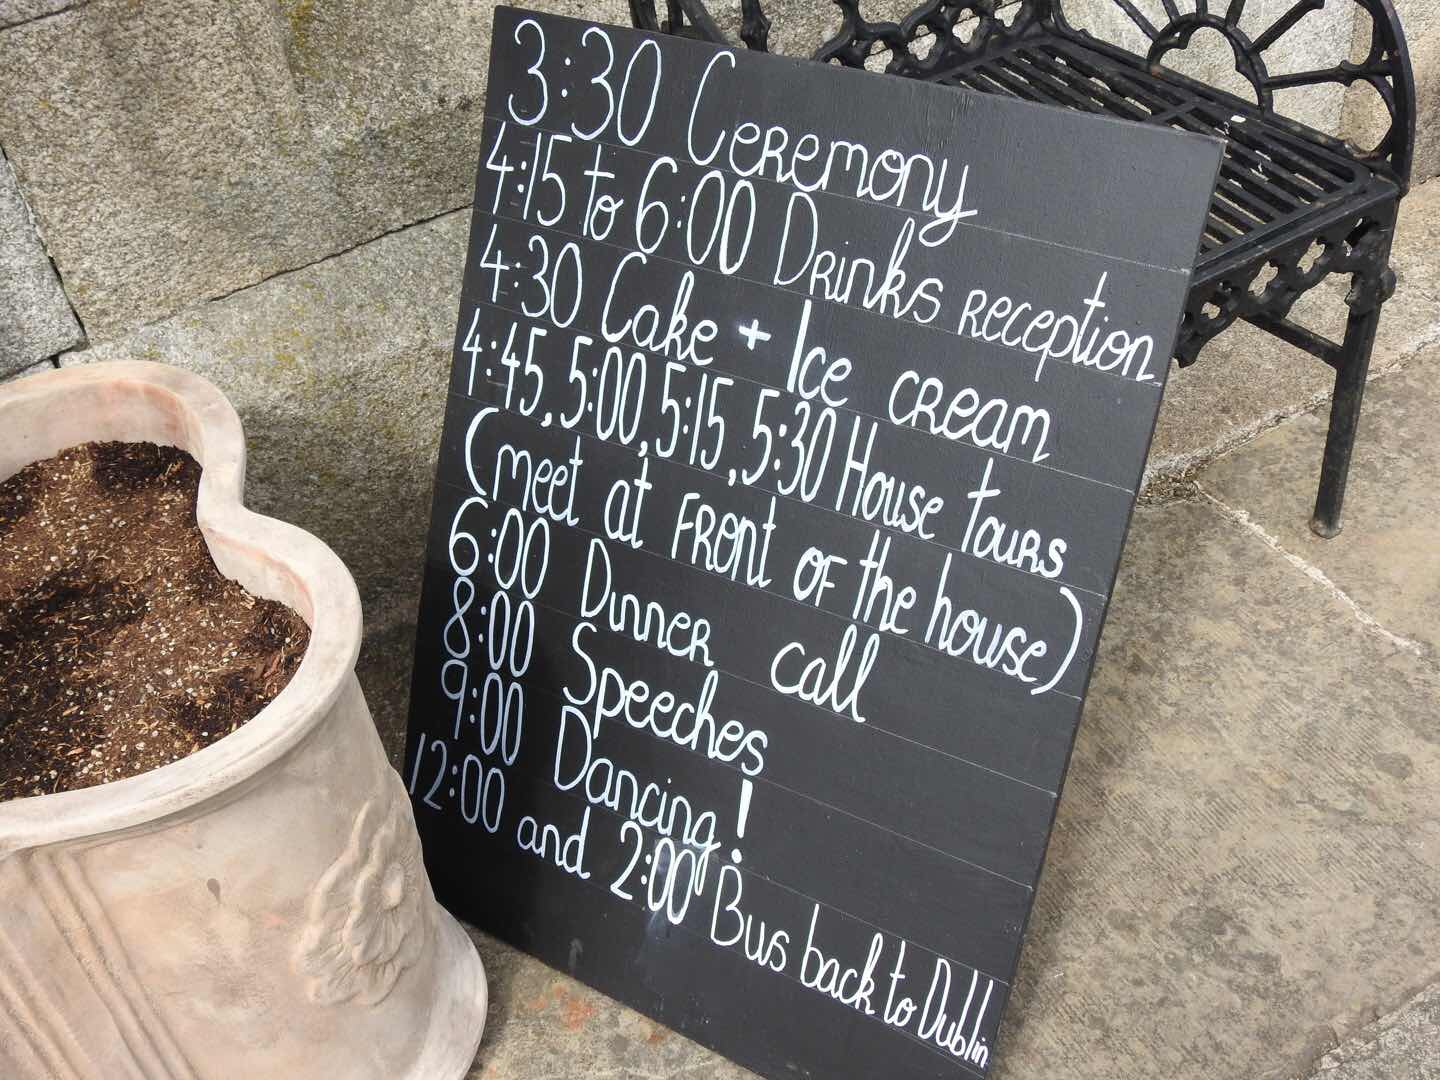 3:30 Ceremony
4:15 to 6:00 Drinks reception
4:30 Cake + Ice cream
4:45, 5:00, 5:15, 5:30 House tours
(meet at front of the house)
6:00 Dinner call
8:00 Speeches
9:00 Dancing!
12:00 and 2:00 Bus back to Dublin